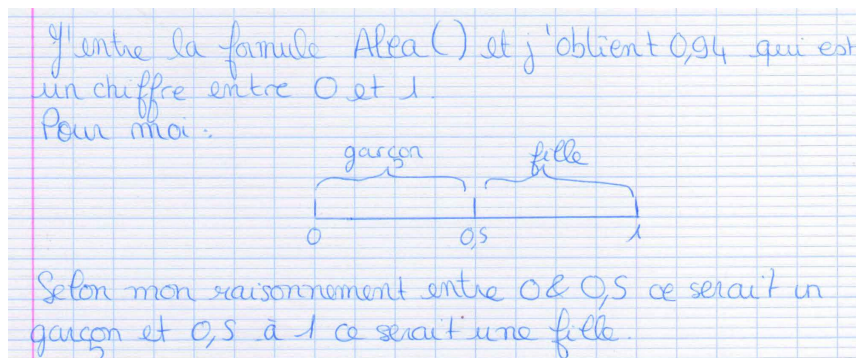 J'entre la formule Alea() et j'obtient 0,94 qui est
un chiffre entre 0 et 1.
Pour moi :
garçon fille
0 0,5 1
Selon mon raisonnement entre 0 & 0,5 ce serait un
garçon et 0,5 à 1 ce serait une fille.